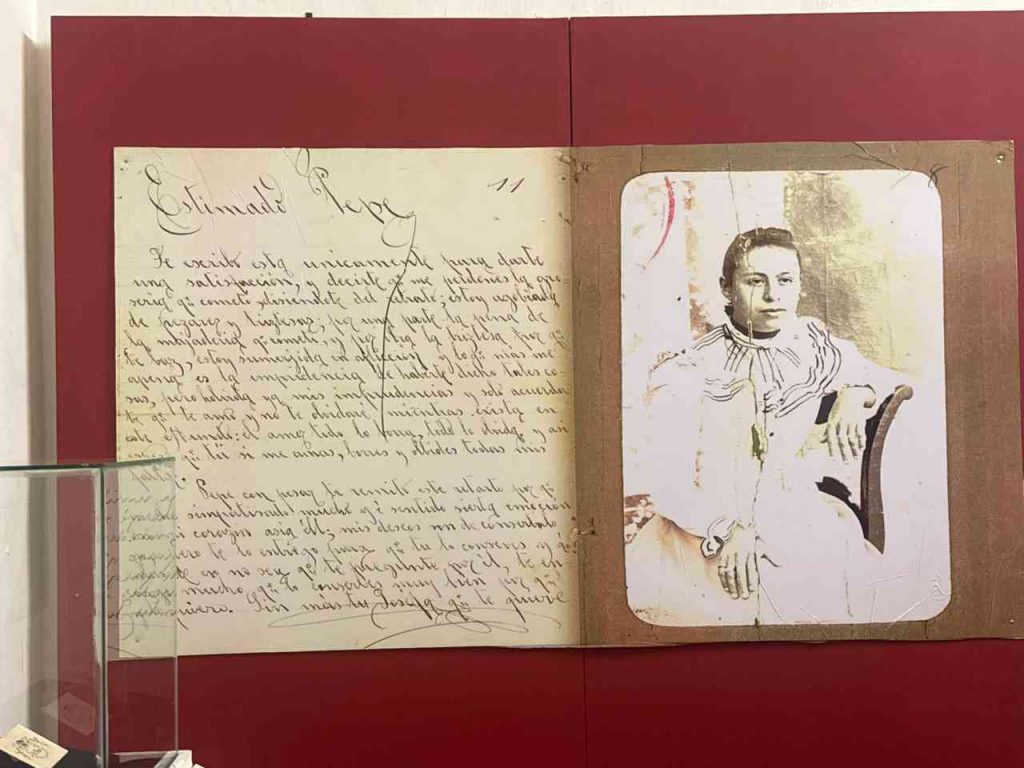 Estimado Pepe 11
Te escribo esta unicamente para darte
una satisfacción, y decirte qe me perdones la gro-
seria qe cometi del retrato; estoy agobiada
de pezares y tristesas; por una parte la pena de
la majaderia qe cometi, y por otra la tristesa por qe
te vas, estoy sumerjida en afliccion y lo qe mas me
apena es la imprudencia de haberte dicho tales co-
sas, pero bolvida ya mis imprudencias y solo acuerda
te qe te amo y no te olvidare mientras exista en
este Mundo: el amor todo lo borra, todo lo olvida, y asi
qe tú si me amas, borres y olbides todas mis
Pepe con pesar te remito este retrato por qe
simpatisado mucho qe sentido sierta emocion
corazon asia él, mis deseos son de conserbarlo
pero te lo entrego para qe tu lo conserves y qe
en no ser qe te pregunte por el, te en
mucho qe lo conserbes muy bien por qe
quiero. Sin mas tu Josefa qe te quiere